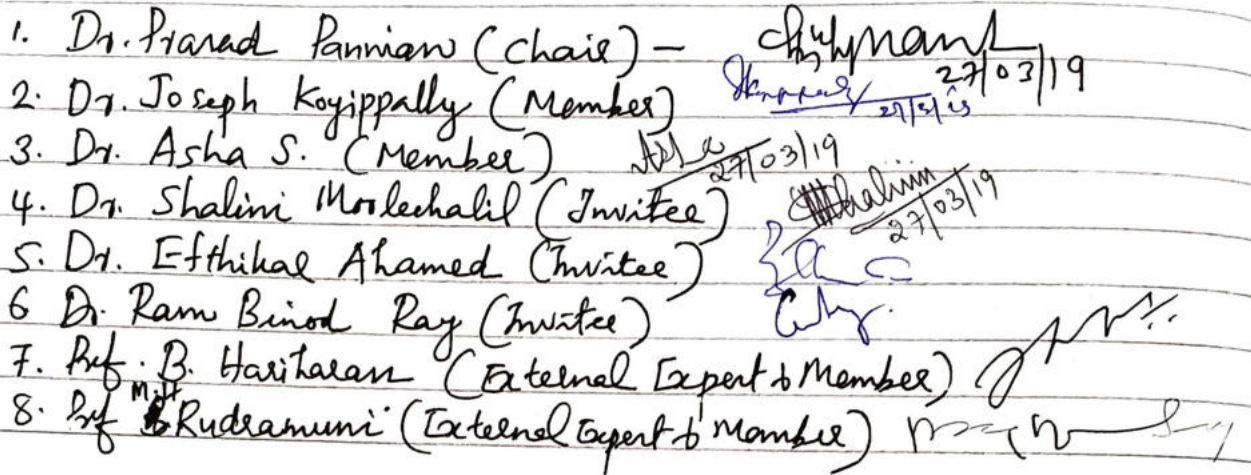 1. Dr. Prasad Pannian (Chair) –
27/03/19
2. Dr. Joseph Koyippally (Member)
3. Dr. Asha S. (Member)
27/03/19
4. Dr. Shalini Moolechalil (Invitee)
27/03/19
5. Dr. Efthikar Ahamed (Invitee)
6 Dr. Ram Binod Ray (Invitee)
7. Prof. B. Hariharan (External Expert & Member)
8. Prof Rudramuni (External Expert & Member)